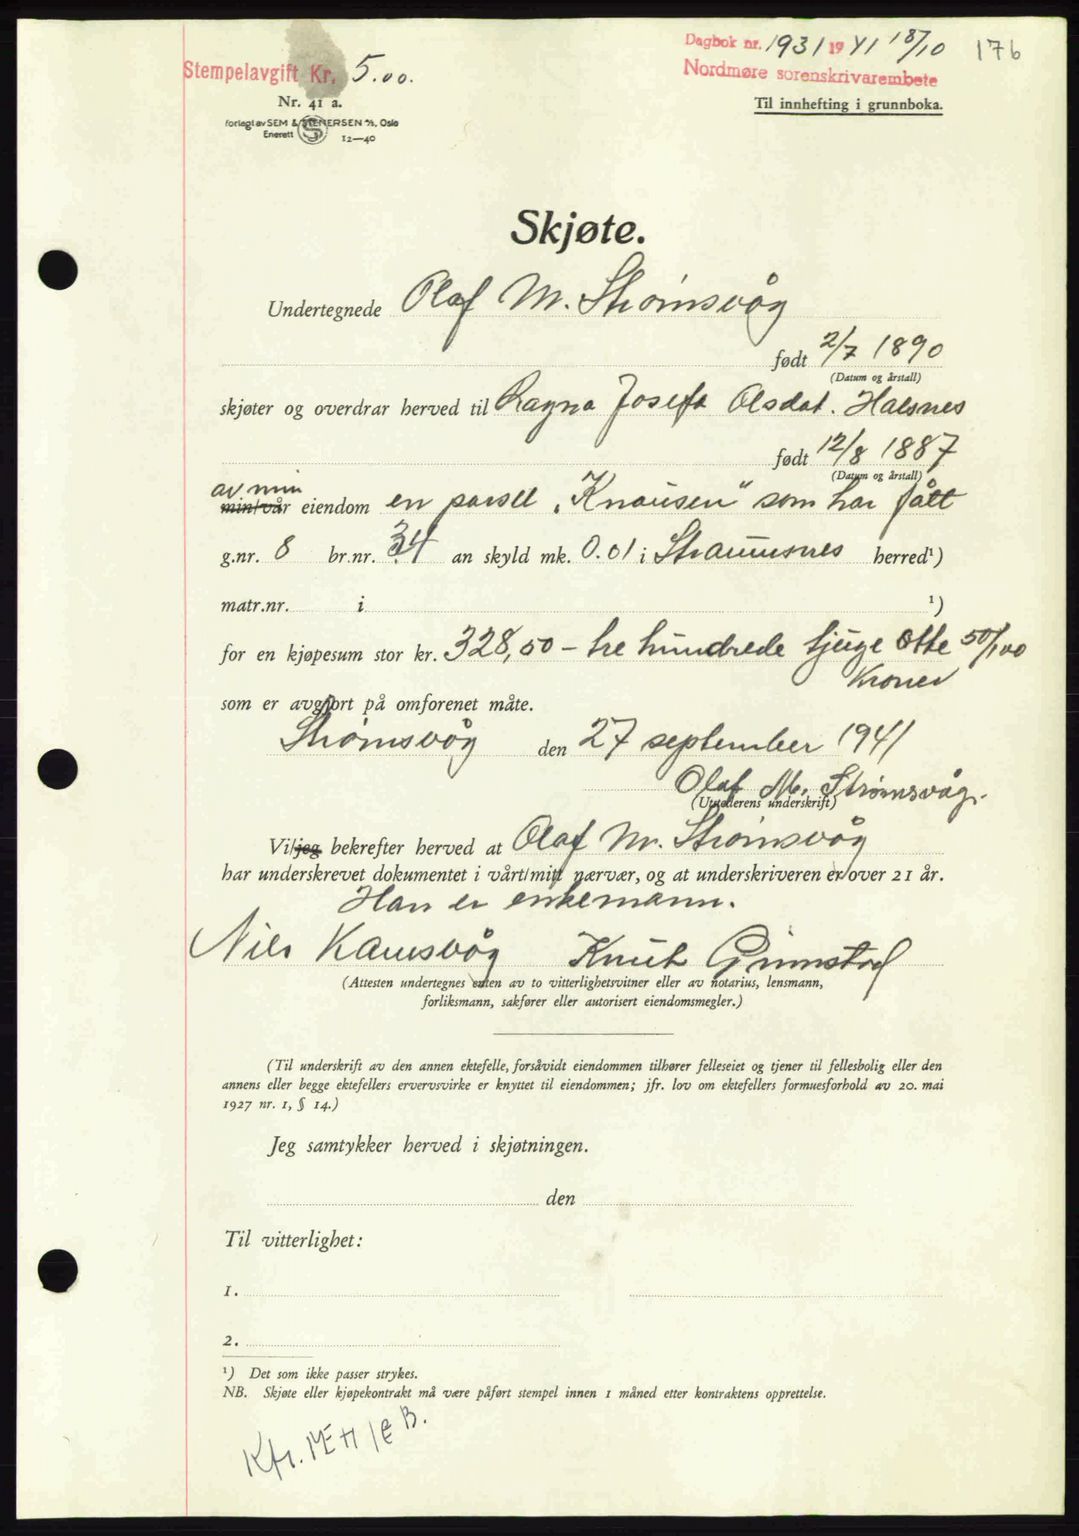 Dagbok nr. 1931 1941 18/10 176
Stempelavgift Kr. 5.00.
Nordmøre sorenskrivarembete
Nr. 41 a.
Til innhefting i grunnboka.
forlagt av SEM & STENERSEN A/S, Oslo
Enerett S 12—40
Skjøte.
Undertegnede Olaf M. Strømsvåg
født 2/7 1890
(Datum og årstall)
skjøter og overdrar herved til Ragna Josefa Olsdat. Halsnes
født 12/8 1887
(Datum og årstall)
av min
min/vår eiendom en parsell „Knausen“ som har fått
g.nr. 8 br.nr. 34 an skyld mk. 0.01 i Straumsnes herred¹)
matr.nr. i ¹)
for en kjøpesum stor kr. 328,50 – tre hundrede tjuge otte 50/100
Kroner
som er avgjort på omforenet måte.
Strømsvåg den 27 september 1941
Olaf M. Strømsvåg.
(Utstederens underskrift)
Vi/jeg bekrefter herved at Olaf M. Strømsvåg
har underskrevet dokumentet i vårt/mitt nærvær, og at underskriveren er over 21 år.
Han er enkemann.
Nils Kamsvåg Knut Grimstad
(Attesten undertegnes enten av to vitterlighetsvitner eller av notarius, lensmann,
forliksmann, sakfører eller autorisert eiendomsmegler.)
(Til underskrift av den annen ektefelle, forsåvidt eiendommen tilhører felleseiet og tjener til fellesbolig eller den
annens eller begge ektefellers ervervsvirke er knyttet til eiendommen; jfr. lov om ektefellers formuesforhold av 20. mai
1927 nr. 1, § 14.)
Jeg samtykker herved i skjøtningen.
den
Til vitterlighet:
1.
2.
¹) Det som ikke passer strykes.
NB. Skjøte eller kjøpekontrakt må være påført stempel innen 1 måned etter kontraktens opprettelse.